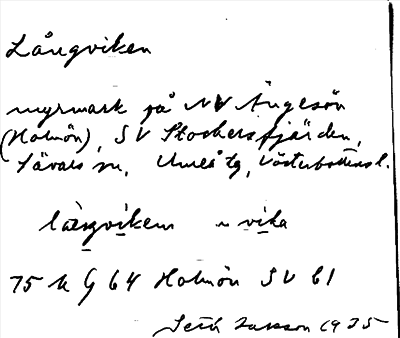 Långviken
myrmark på NV Ängesön
(Holmön), SV Stockersfjärden,
Sävars sn, Umeå tg, Västerbottens l.
långviken vika
75 k G 64 Holmön SV bl
Seth Jansson 1935